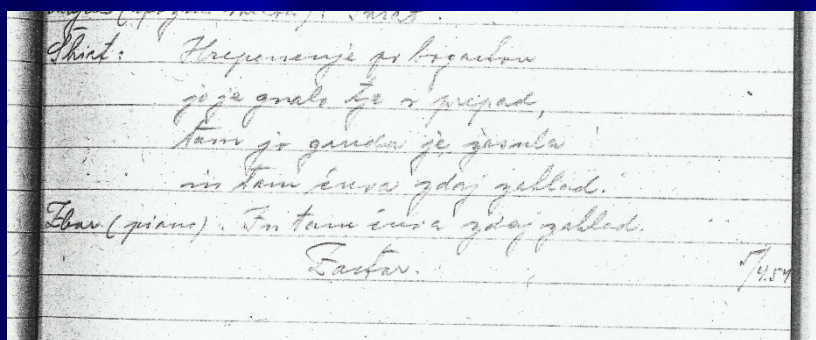 Škrat: Hrepenenje po bogastvu
jo je gnalo tje v prepad,
tam jo gruda je zasula
in tam čuva zdaj zaklad.
Zbor (piano). In tam čuva zdaj zaklad.
Zastor.